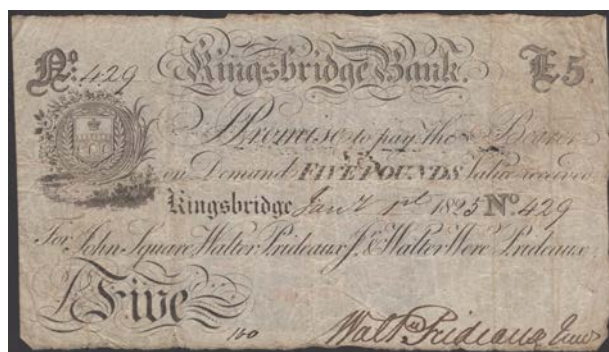 No. 429 Kingsbridge Bank. £5.
I Promise to pay the Bearer
on Demand FIVE POUNDS Value received
Kingsbridge Jany. 1st 1825 No. 429
For John Square, Walter Prideaux Jr. & Walter Were Prideaux
£ Five
160
Waltr. Prideaux Junr